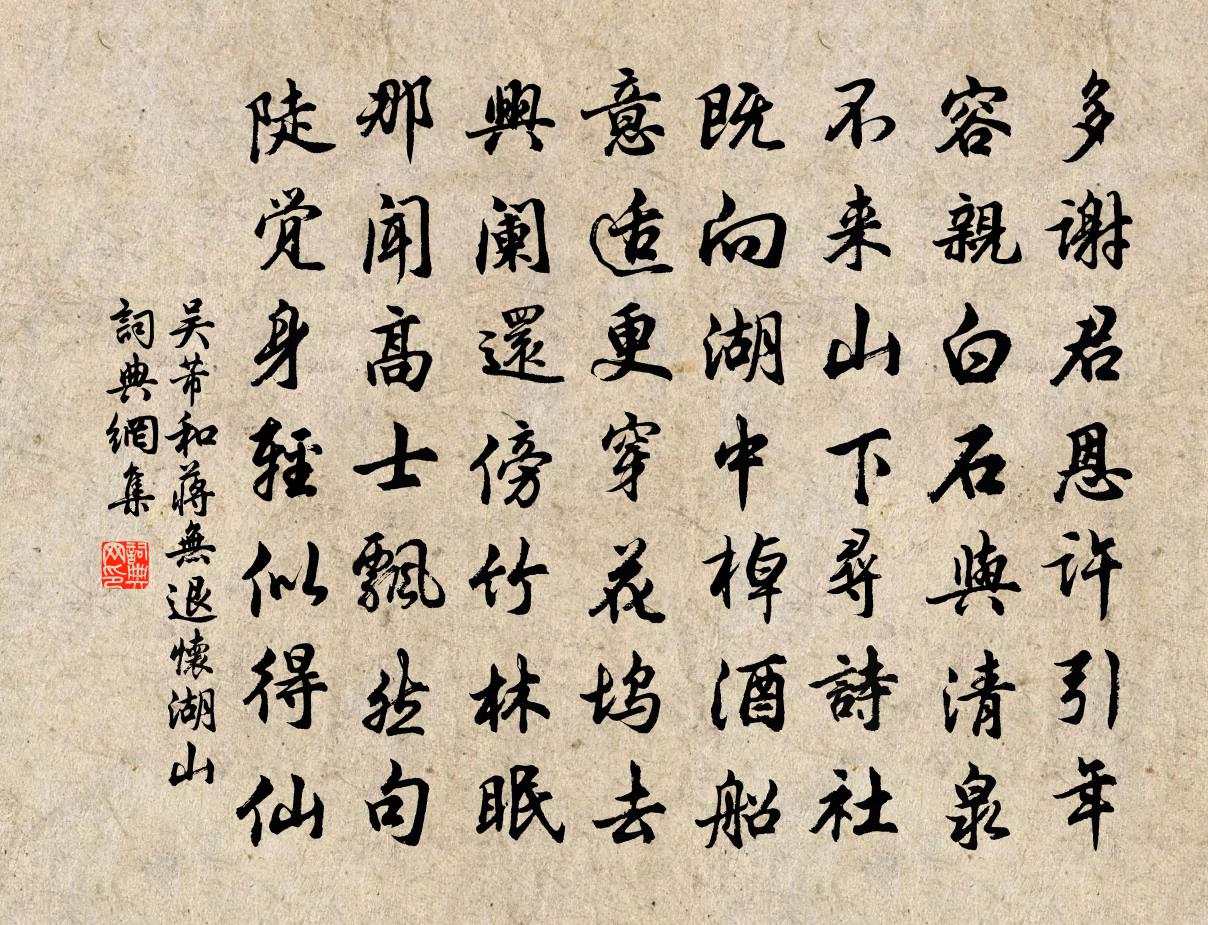 多謝君恩許引年
容親白石與清泉
不来山下尋詩社
既向湖中棹酒船
意适更穿花塢去
興阑還傍竹林眠
那聞高士飄然句
陡觉身輕似得仙
吴芾和蔣無退懷湖山
詞典網集
詞典
网印